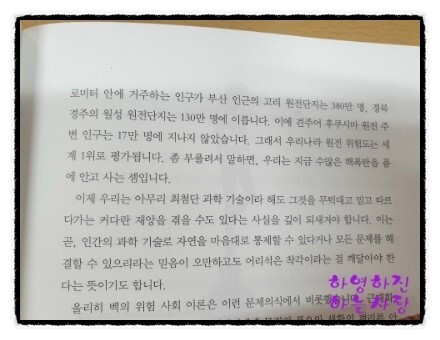 로미터 안에 거주하는 인구가 부산 인근의 고리 원전단지는 380만 명, 경북
경주의 월성 원전단지는 130만 명에 이릅니다. 이에 견주어 후쿠시마 원전 주
변 인구는 17만 명에 지나지 않았습니다. 그래서 우리나라 원전 위험도는 세
계 1위로 평가됩니다. 좀 부풀려서 말하면, 우리는 지금 수많은 핵폭탄을 품
에 안고 사는 셈입니다.
이제 우리는 아무리 최첨단 과학 기술이라 해도 그것을 무턱대고 믿고 따르
다가는 커다란 재앙을 겪을 수도 있다는 사실을 깊이 되새겨야 합니다. 이는
곧, 인간의 과학 기술로 자연을 마음대로 통제할 수 있다거나 모든 문제를 해
결할 수 있으리라는 믿음이 오만하고도 어리석은 착각이라는 걸 깨달아야 한
다는 뜻이기도 합니다.
울리히 벡의 위험 사회 이론은 이런 문제의식에서
하영하진
하늘사랑